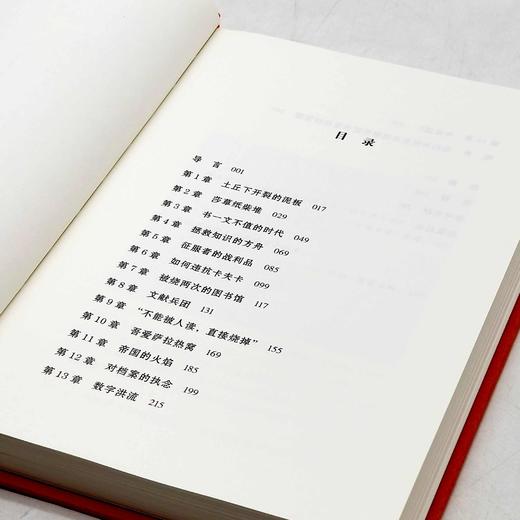 目 录
导 言 001
第1章 土丘下开裂的泥板 017
第2章 莎草纸柴堆 029
第3章 书一文不值的时代 049
第4章 拯救知识的方舟 069
第5章 征服者的战利品 085
第6章 如何违抗卡夫卡 099
第7章 被烧两次的图书馆 117
第8章 文献兵团 131
第9章 “不能被人读，直接烧掉” 155
第10章 吾爱萨拉热窝 169
第11章 帝国的火焰 185
第12章 对档案的执念 199
第13章 数字洪流 215